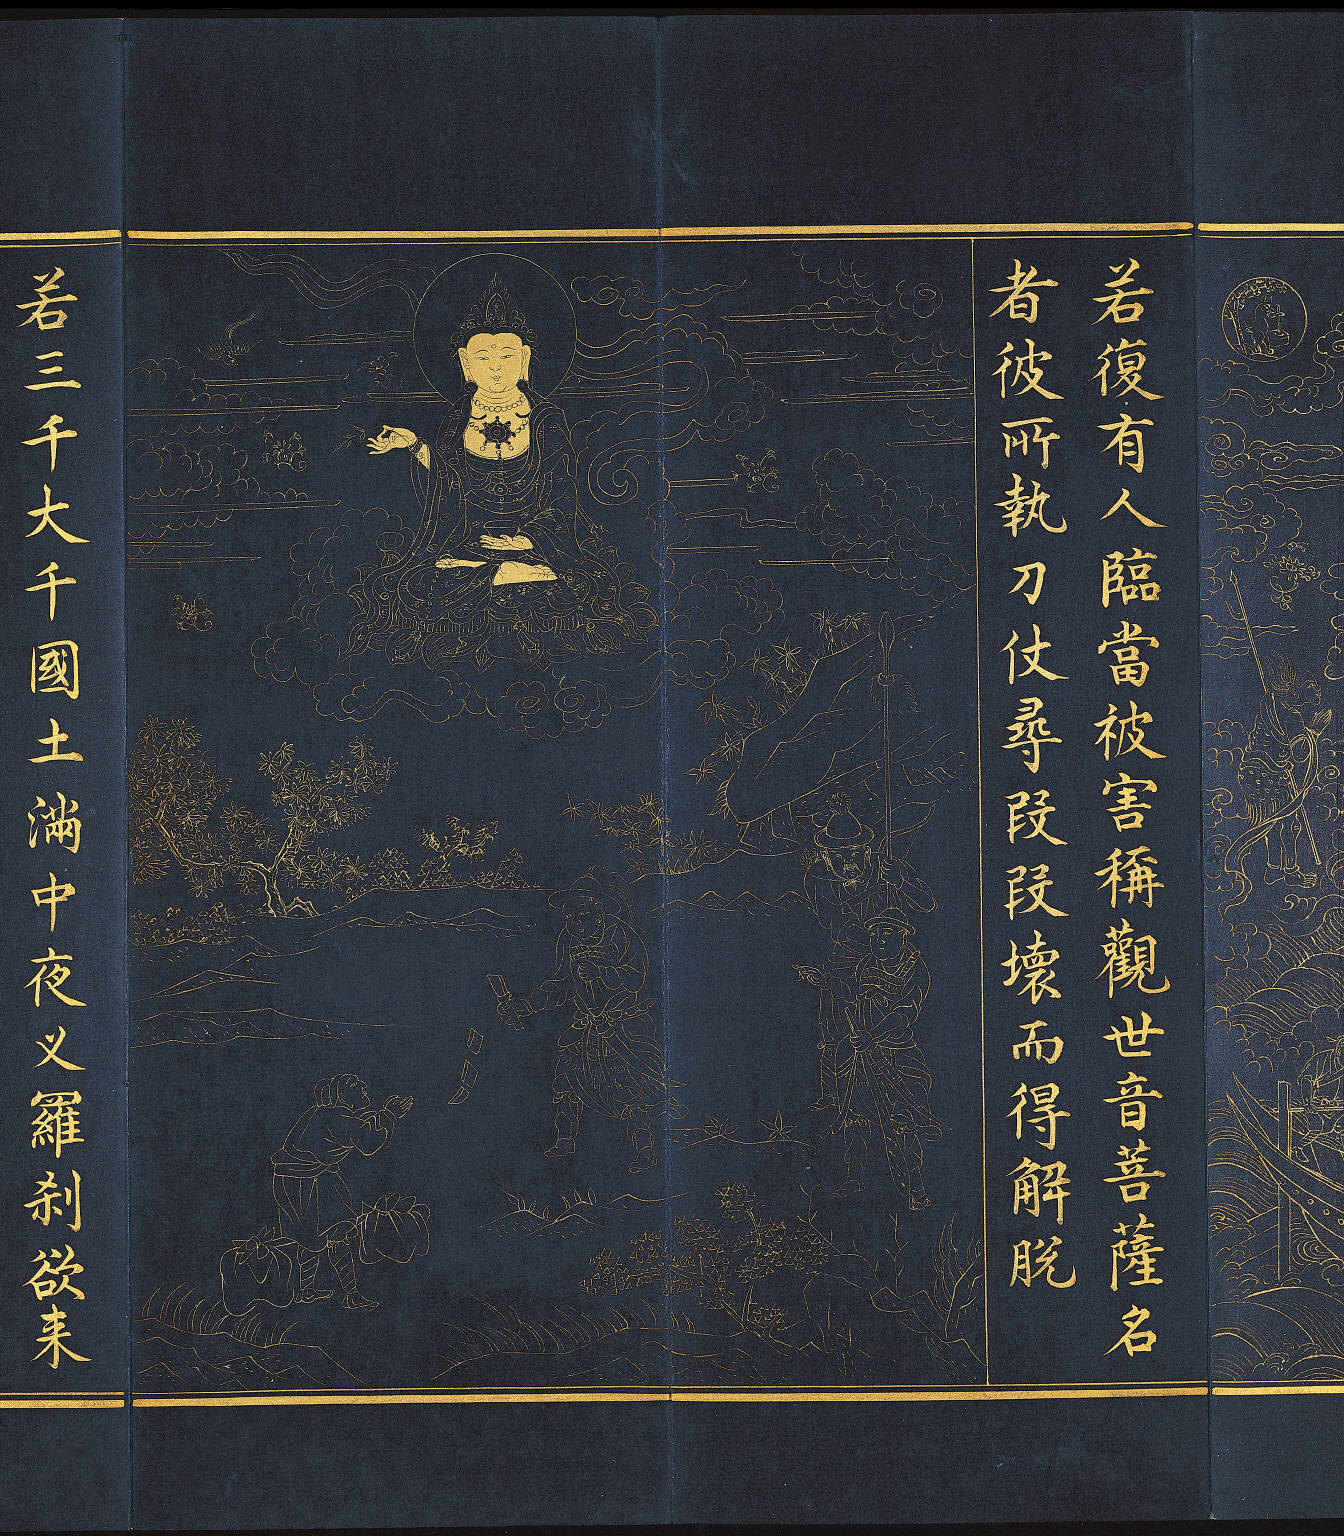 若復有人臨當被害稱觀世音菩薩名
者彼所執刀仗尋段段壞而得解脫
若三千大千國土滿中夜义羅刹欲来